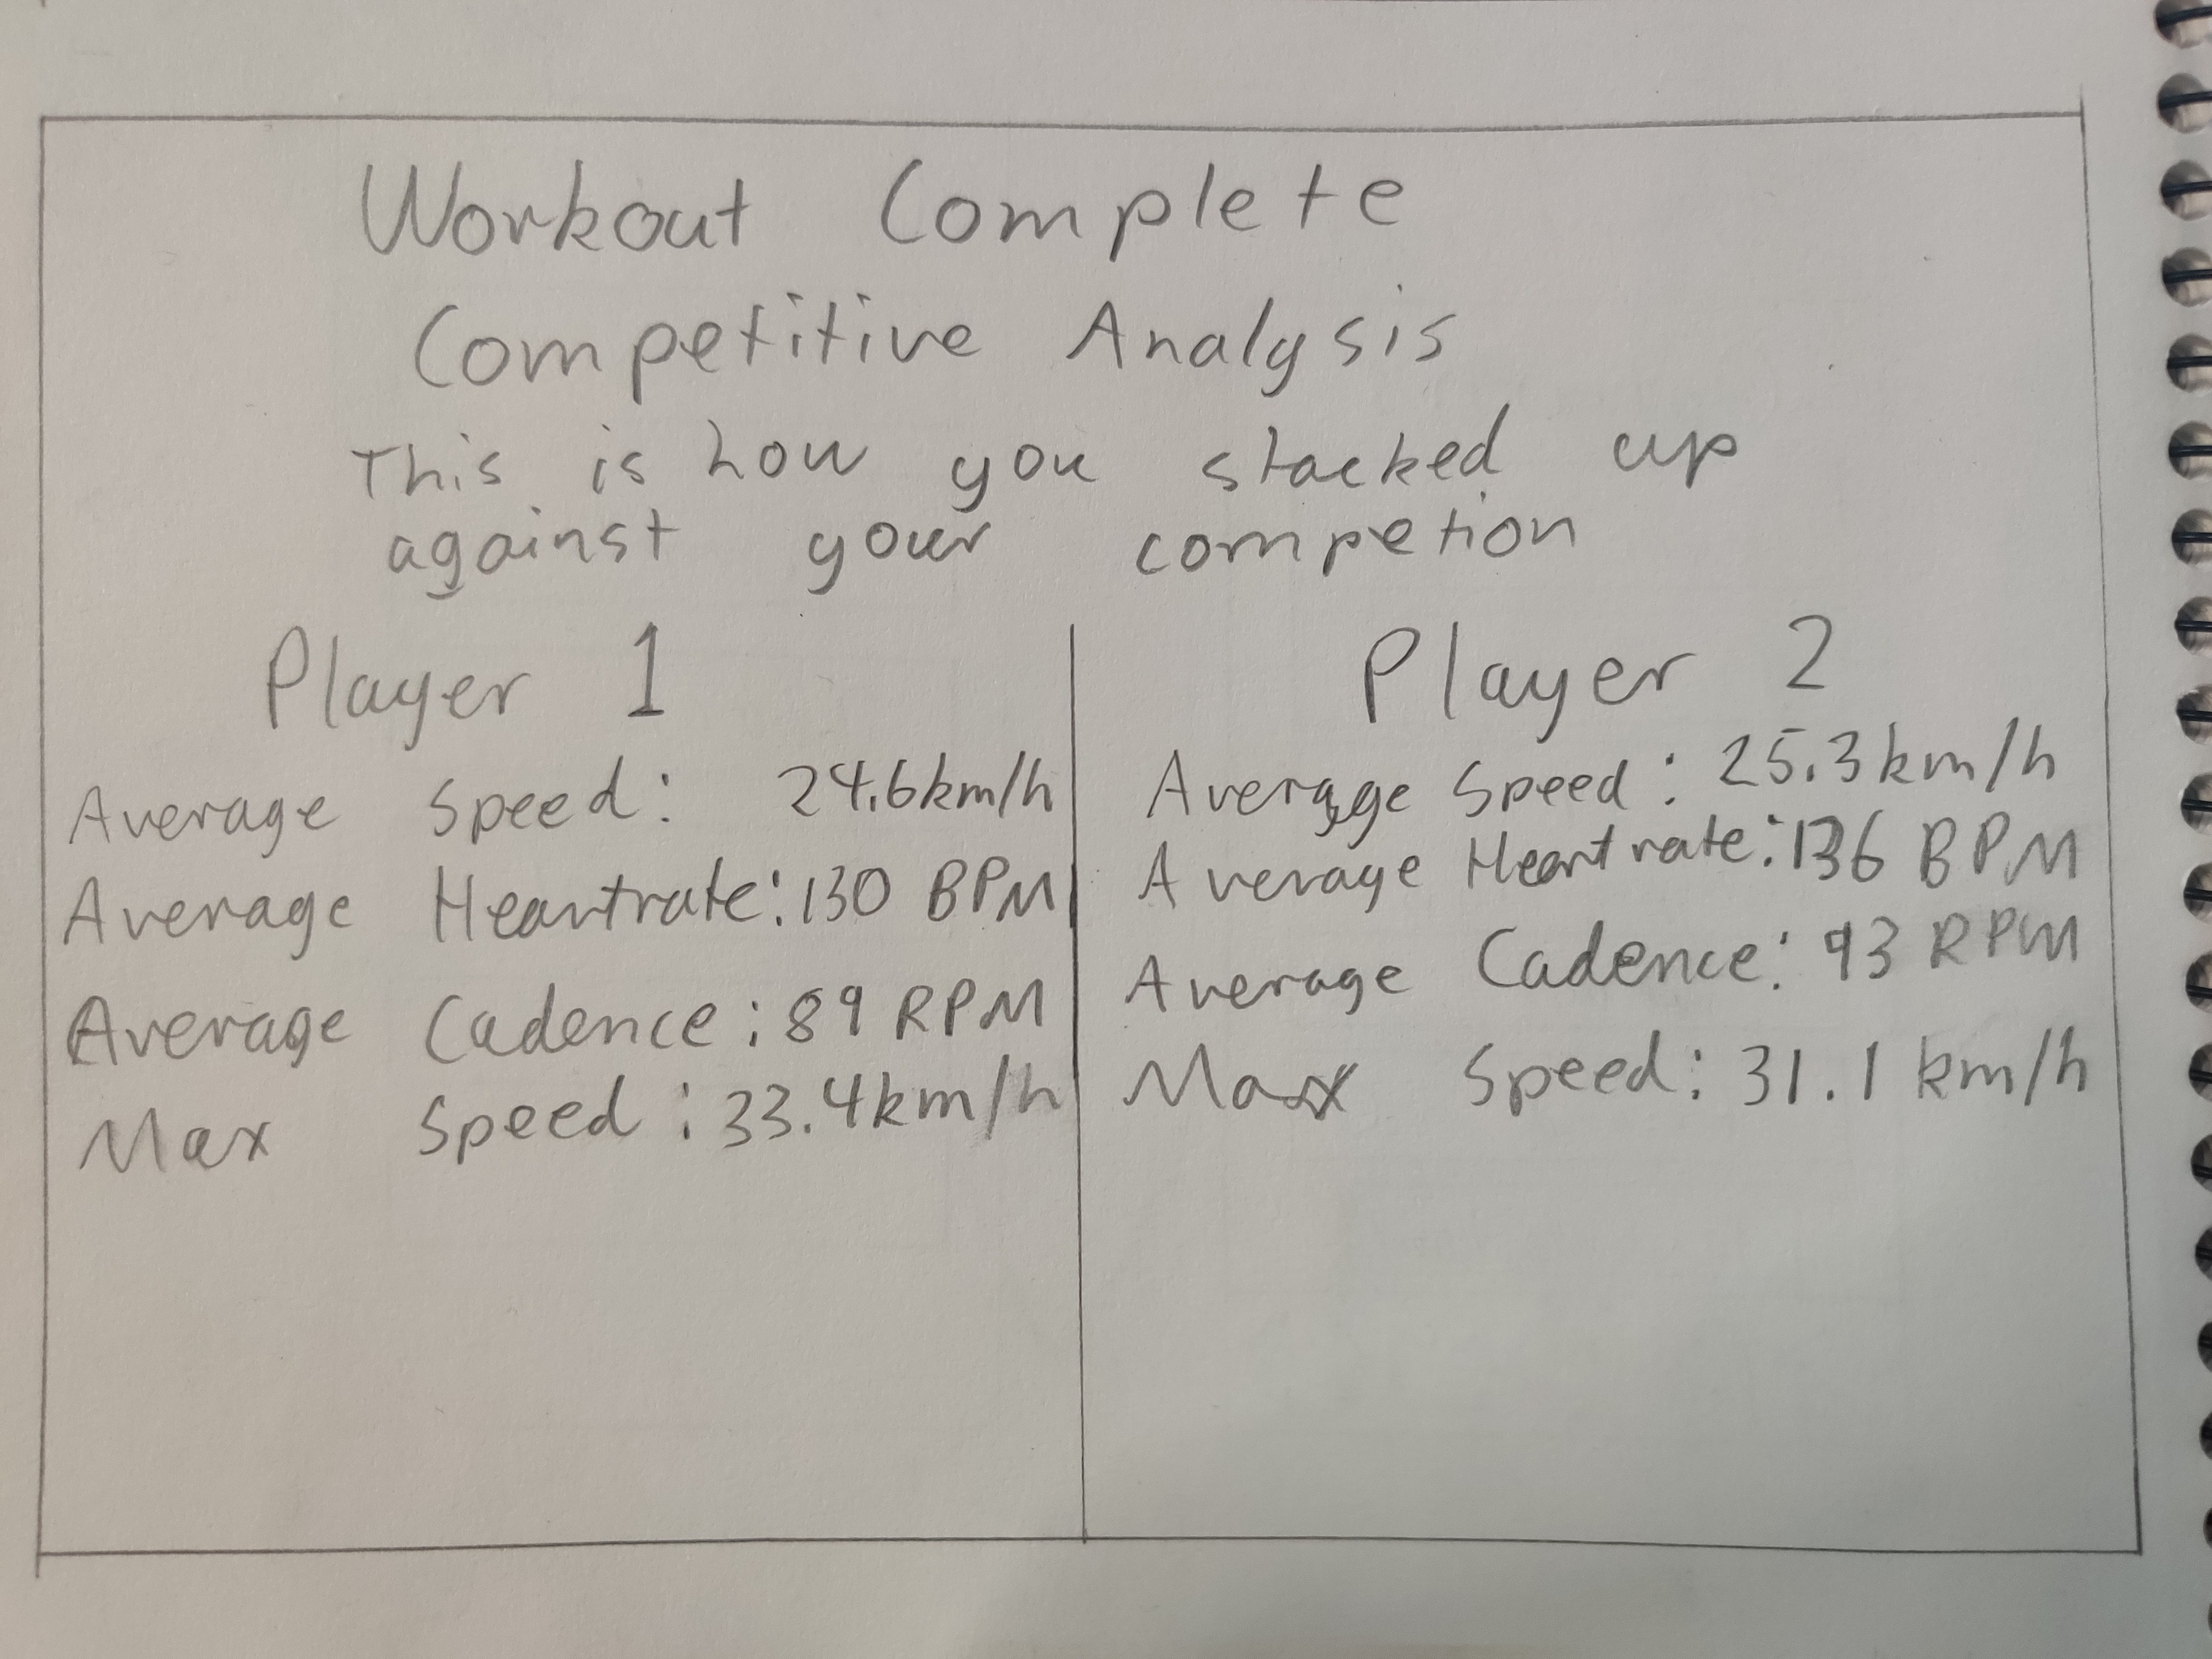 Workout Complete
Competitive Analysis
This is how you stacked up
against your competion
Player 1
Average Speed: 24.6km/h
Average Heartrate: 130 BPM
Average Cadence: 89 RPM
Max Speed: 33.4km/h
Player 2
Average Speed: 25.3km/h
Average Heartrate: 136 BPM
Average Cadence: 93 RPM
Max Speed: 31.1 km/h